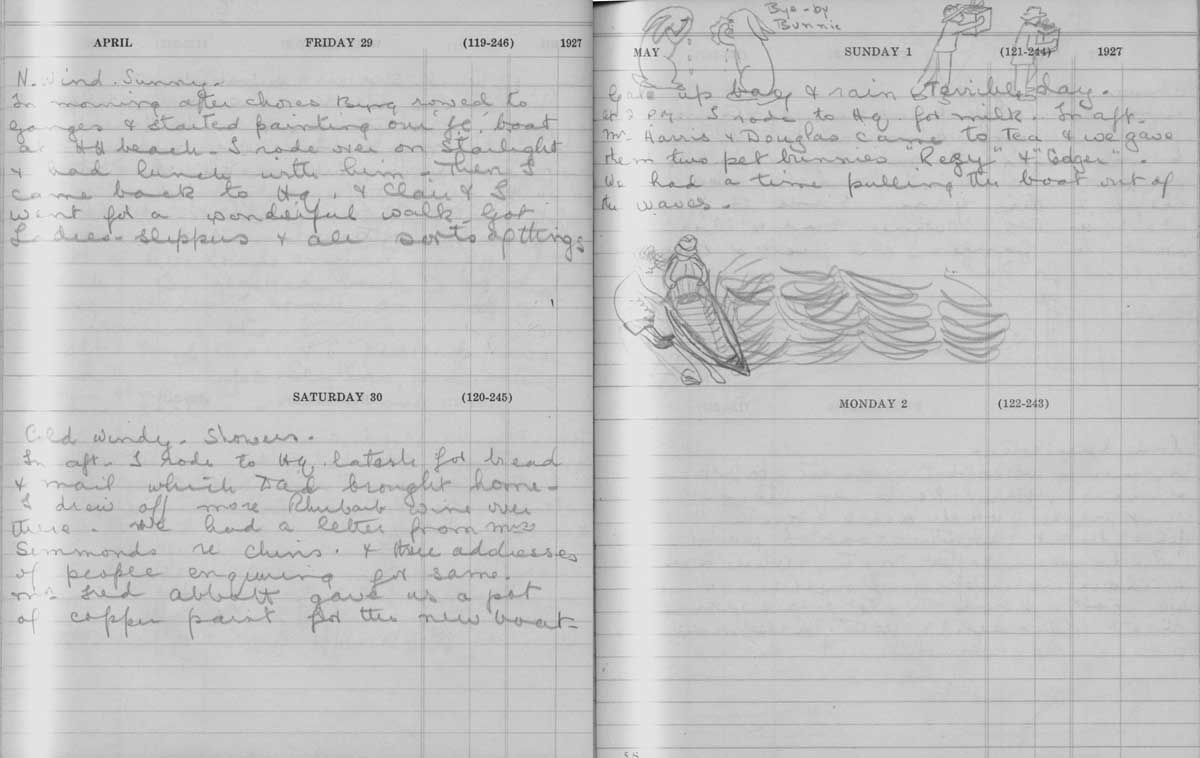 APRIL FRIDAY 29 (119-246) 1927
N. Wind. Sunny.
In morning after chores Byng rowed to
Ganges & started painting our boat
at beach - I rode over on Starlight
& had lunch with him - Then I
came back to Hq. & Clau & I
went for a wonderful walk. Got
Ladies-slippers & all sorts of things
SATURDAY 30 (120-245)
Cold windy. Showers.
In aft. I rode to Hq. latish for bread
& mail which Dad brought home -
I drew off more Rhubarb wine over
there. We had a letter from Mrs
Simmonds re chins. & three addresses
of people enquiring for same.
Mr Fred Abbott gave us a pot
of copper paint for the new boat -
Bye-by
Bunnie
MAY SUNDAY 1 (121-244) 1927
Gale up bay & rain Terrible day.
at 2 P.M. I rode to Hq. for milk. In aft.
Mr. Harris & Douglas came to Tea & we gave
them two pet bunnies "Regy" & "Edger".
We had a time pulling the boat out of
the waves.
MONDAY 2 (122-243)